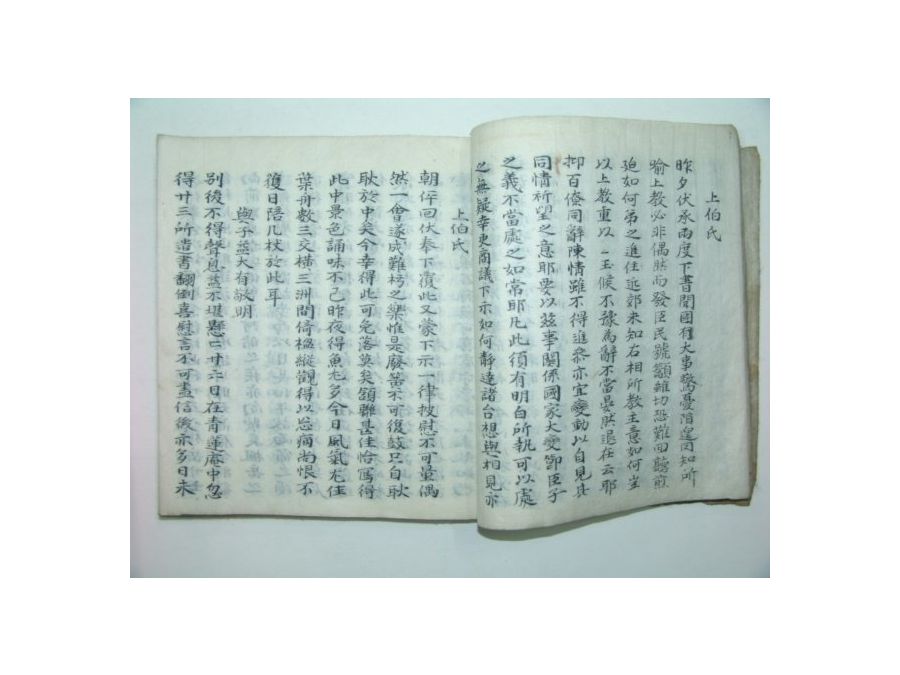 上伯氏
昨夕伏承兩度下書聞國有大事驚憂惶罔知所
喻上教必非偶然而發臣民號籲雖切恐難回聽煎
迫如何弟之進住近郊未知右相所教主意如何豈
以上教重以玉候不豫為辭不當晏然退在云耶
抑百僚同辭陳情雖不得進參亦宜變動以自見其
同情祈望之意耶要以茲事關係國家大變卽臣子
之義不當處之如常耶凡此須有明白所執可以處
之無疑幸更商議下示如何靜達諸台想與相見亦
上伯氏
朝伻回伏奉下復此又蒙下示一律披慰不可量偶
然一會遂成難 之樂惟是廢篣不可復鼓只自耿
耿於中矣今幸得此可免落莫矣額聯甚佳恰寫得
此中景色誦味不已昨夜得魚尤多今日風氣尤佳
葉舟數三交橫三洲間倚楹縱觀得以忘痛尚恨不
復日陪几杖於此耳
與子益大有敬明
別後不得聲息益不堪懸 卄六日在青蓮庵中忽
得卄三所遣書翻倒喜慰言不可盡信後亦多日未